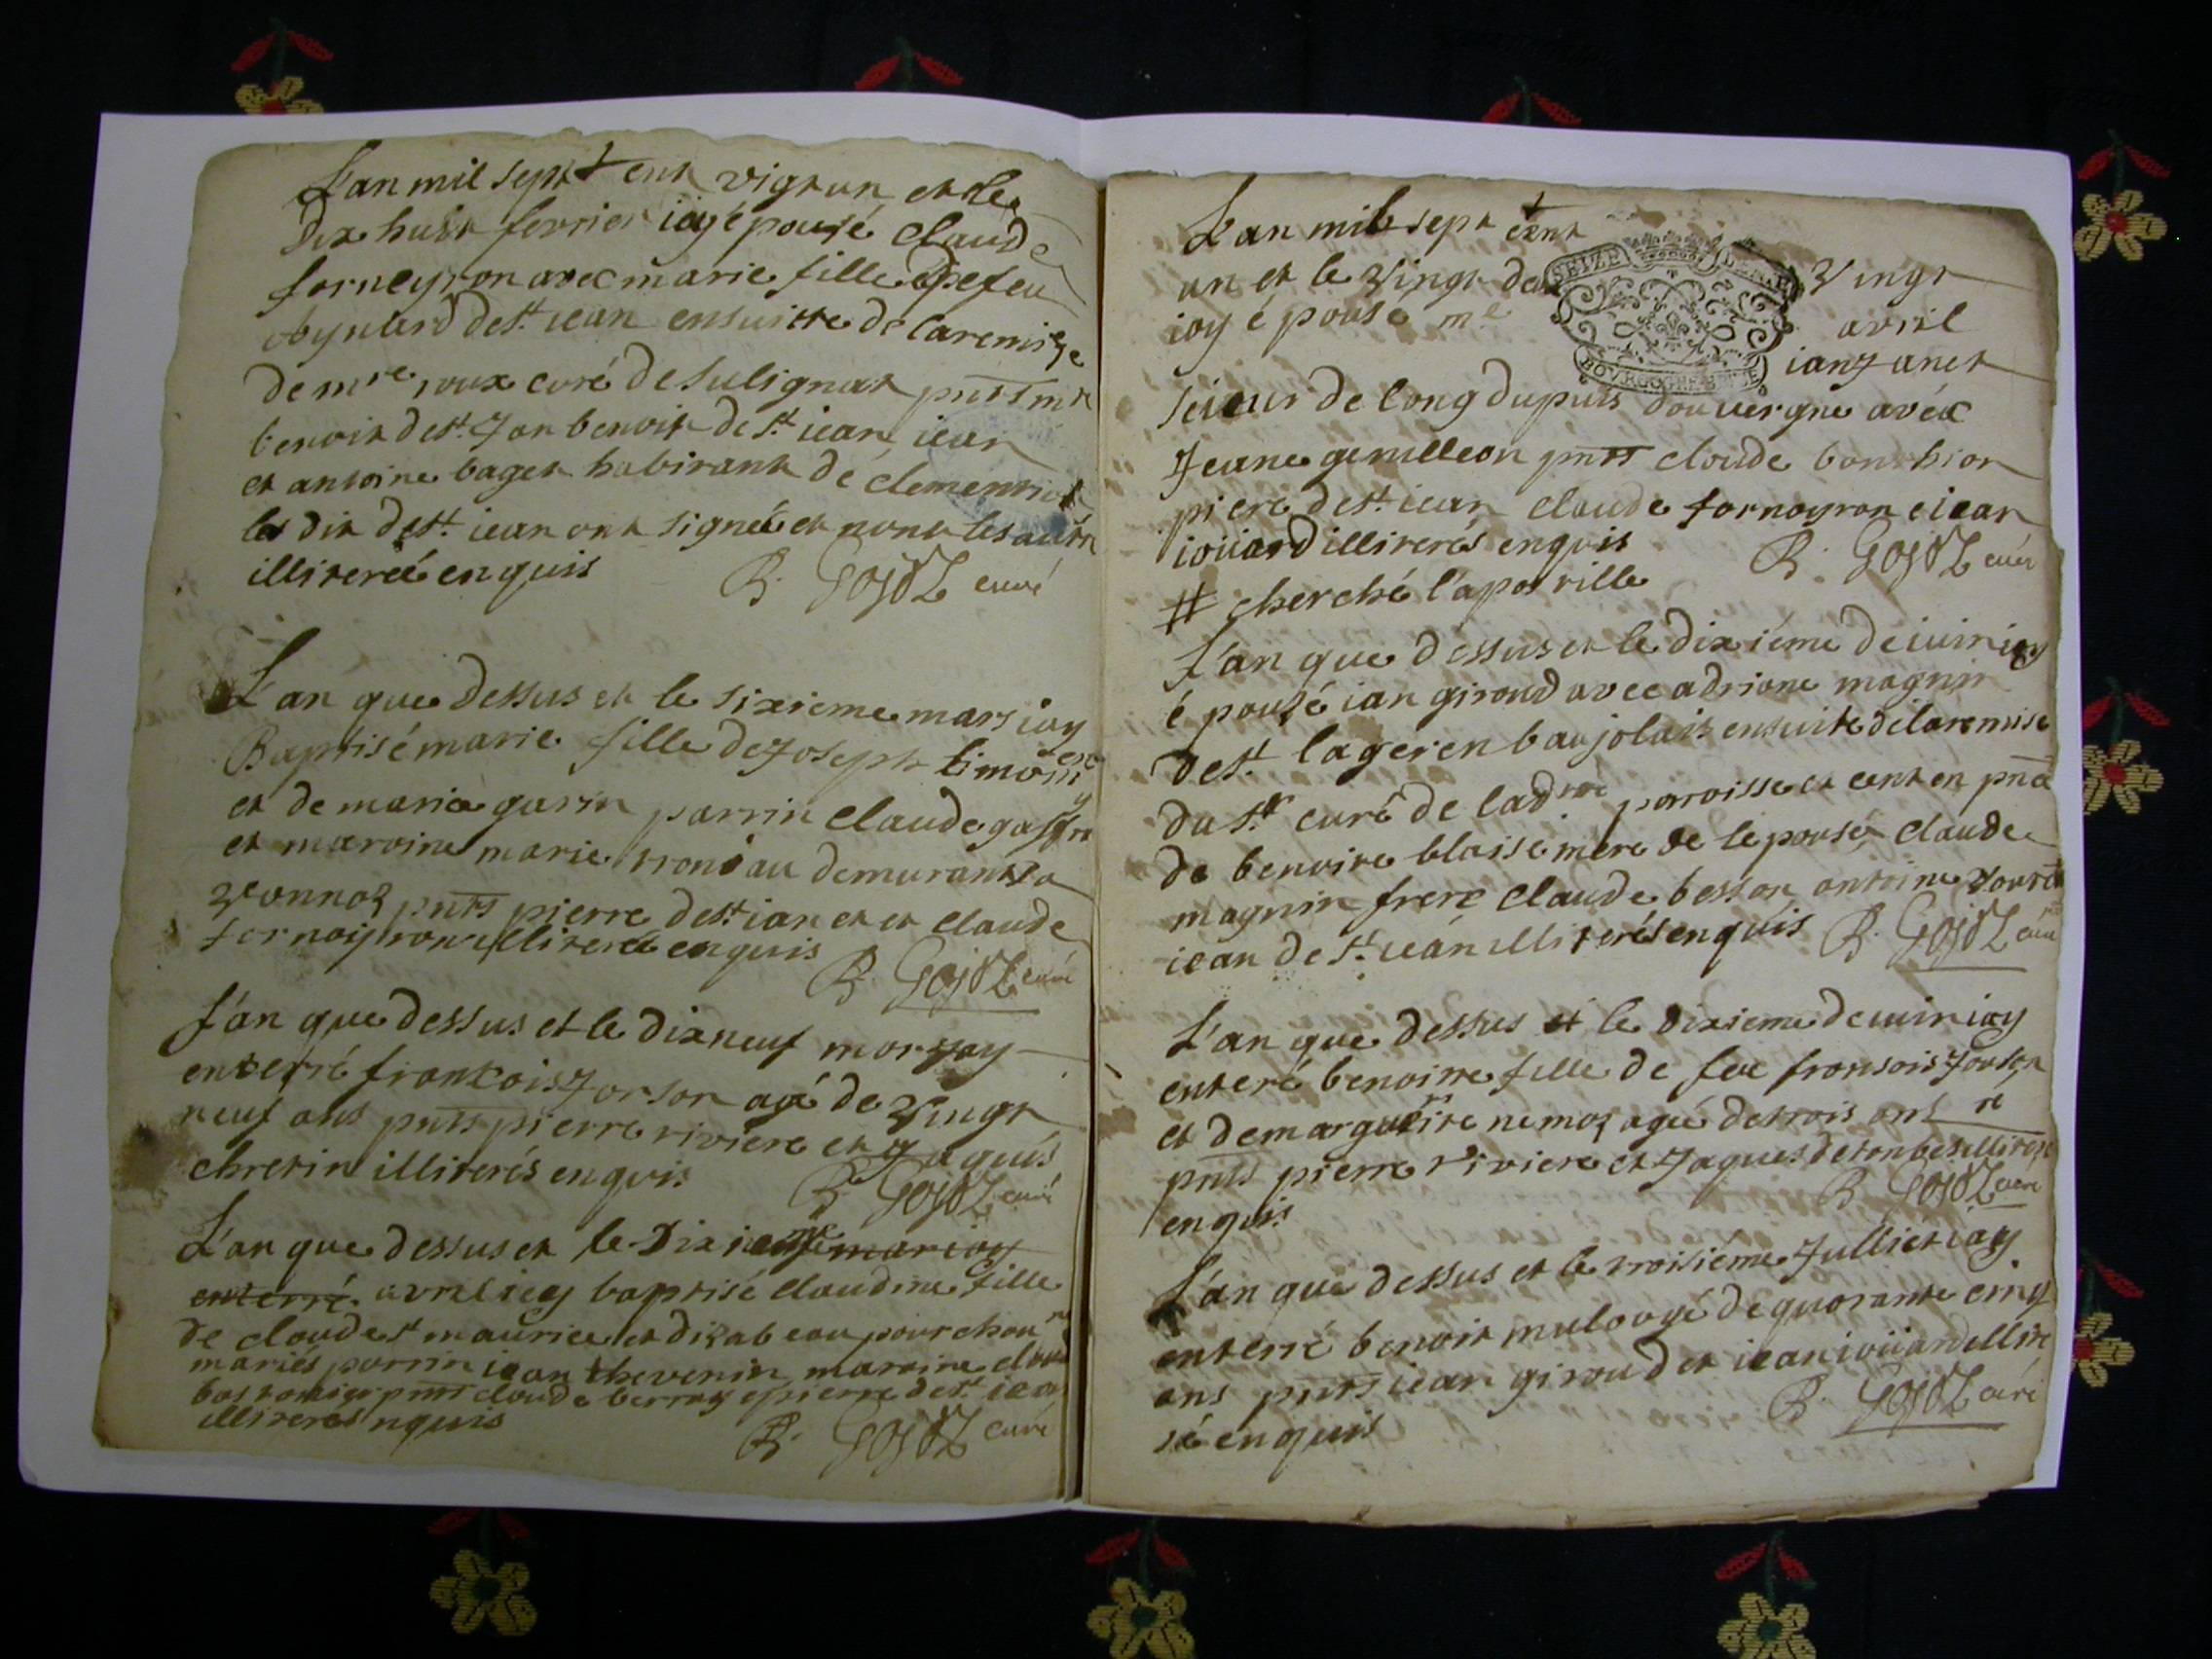 L'an mil sept cent vigt un et le
dix huit fevrier iay épousé Claude
forneyron avec marie fille de feu
Aynard de st. iean ensuitte de laremise
de mre roux curé de sulignat pnts mr
benoit de st. Jan benoit de st iean iean
et antoine baget habitant de clementiat
les dit de st. iean ont signée et nont les autre
illiteréé enquis B. Gojoz curé
L'an que dessus et le sixieme mars iay
Baptisé marie fille de Joseph
et de marie garin parrin Claude
et maroine marie troniau demurants a
vonnoz pnts pierre de st ian et et claude
fornoyron illitereé enquis
B. Gojoz curé
L'an que dessus et le dixneuf mors jay
enterré francois Jorson agé de vingt
neuf ans pnts pierre riviere et Jaques
chretin illiterés enquis
B. Gojoz curé
L'an que dessus et le Dixieme mar iay
enterré avril iay baptisé claudine fille
de cloude st maurice et dizabeau pourchou
mariés parrin iean thevenin maroine
pnts cloude berroy epierre de st. iean
illiterés nquis
B. Gojoz curé
L'an mil sept cent
SEIZE
un et le vingt deux vingt
ioy épousé me avril
BOURGOGNE BRESSE
ianzanet
sieur de long dupuis douvergne avec
Jeane genilleon pnts cloude bouchion
piere de st. iean claude fornoyron eiean
ioüard illiterés enquis
B. Gojoz curé
# cherché l'apostille
L'an que dessus et le dixiéme de iuin iay
épousé ian giroud avec adriane magnin
de st. lager en baujolais ensuite de laremise
du sr curé de ladtte parroisse et cent en pnce
de benoite blaise mere de lepouse claude
magnin frere claude besson antoine
iean de st. iean illiterés enquis B. Gojoz curé
L'an que dessus et le dixieme de iuin iay
enteré benoitte fille de feu fransois Jorson
et demarguerite nemoz agée de trois ans
ré
pnts pierre riviere et Jaques detonbes illiteré
enquis
B. Gojoz curé
L'an que dessus et le troisiéme Julliet iay
enterré benoit mulo agé de quorante cinq
ans pnts iean giroud et iean ioüard illite
ré enquis
B. Gojoz curé